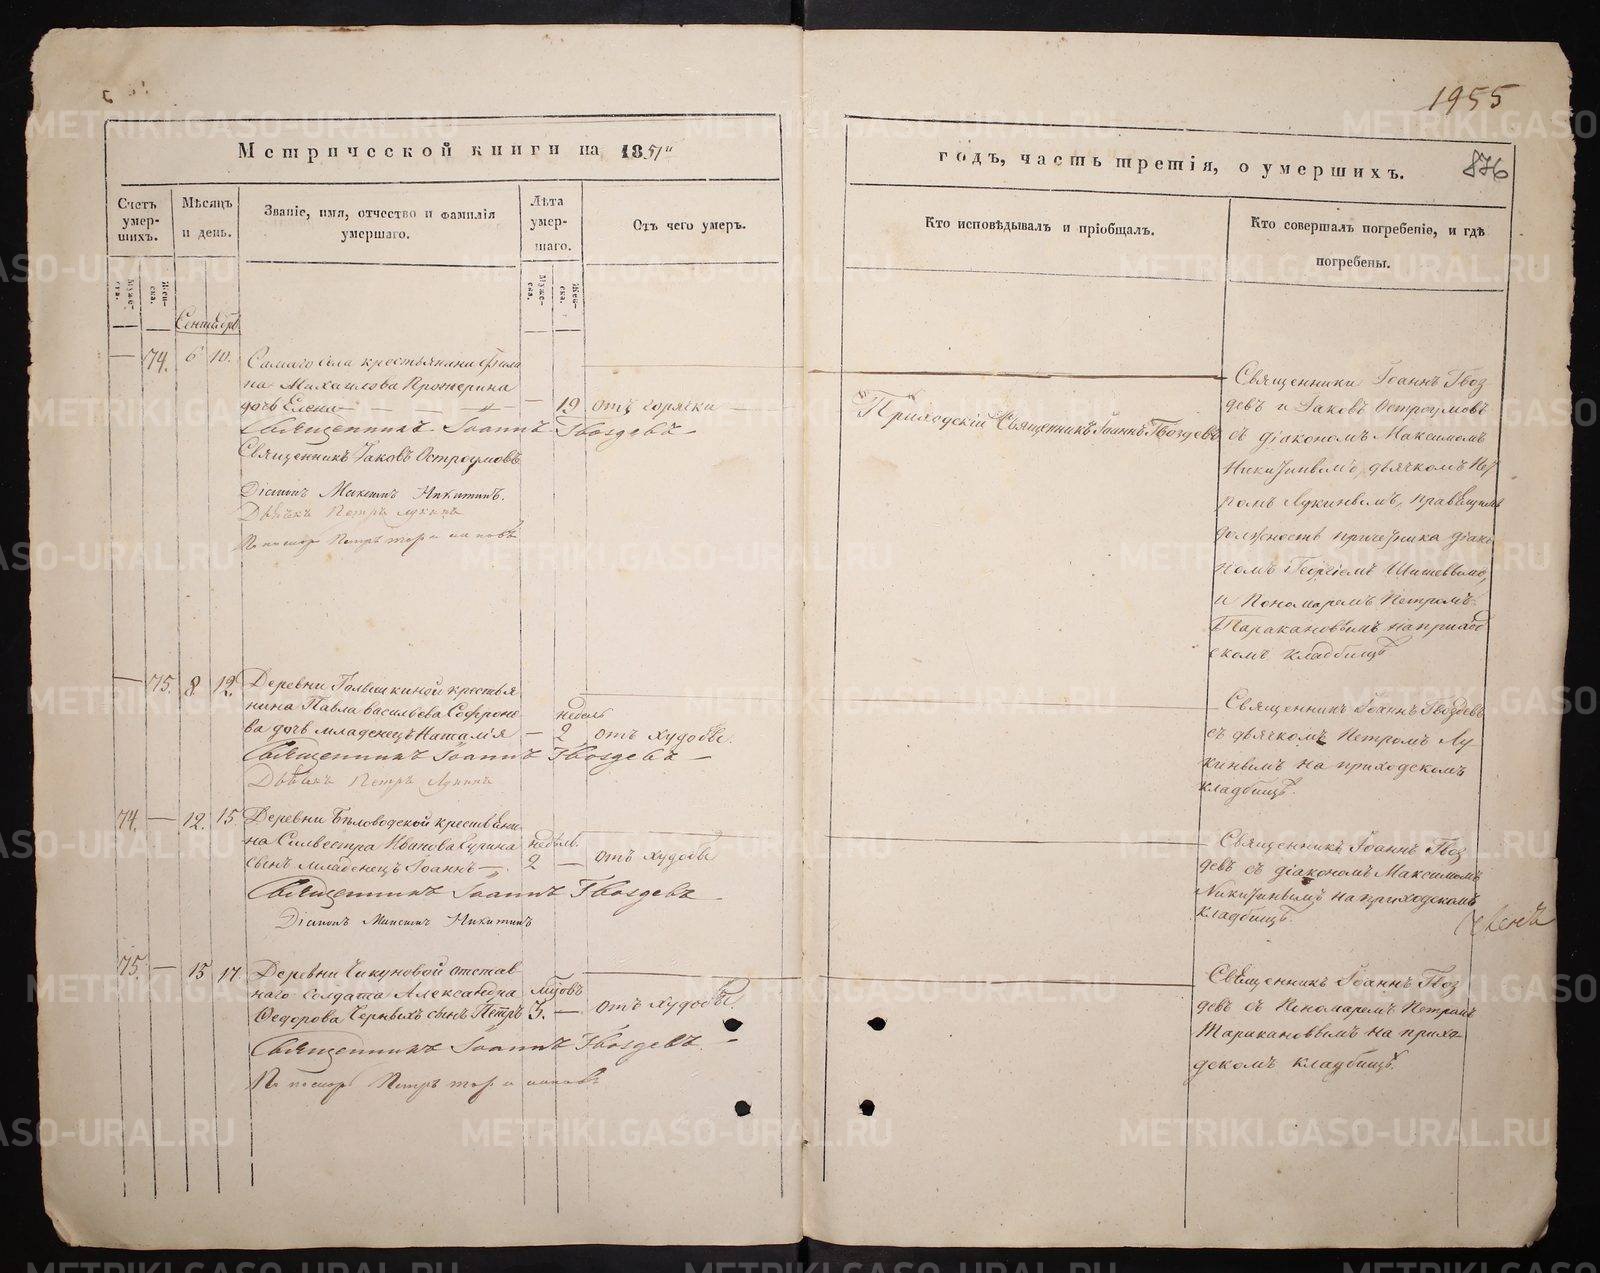 1955
Метрической книги на 1851й
годъ, часть третія, о умершихъ.
876
Счетъ умер-шихъ.
Мѣсяцъ и день.
Званіе, имя, отчество и фамилія умершаго.
Лѣта умер-шаго.
Отъ чего умеръ.
Кто исповѣдывалъ и пріобщалъ.
Кто совершалъ погребеніе, и гдѣ погребены.
Муже-ска.
Жен-ска.
Муже-ска.
Жен-ска.
Сентябрь
— 74. 6 10. Самаго села крестьянина Фила
па Михаилова Прожерина
дочь Елена — 19 отъ горячки —
Священникъ Іоаннъ Гвоздевъ
Священникъ Іаковъ Остроумовъ
Діаконъ Максимъ Никитинъ.
Дьячекъ Петръ Лукинъ
Пономарь Петръ Таракановъ
Приходскій Священникъ Іоаннъ Гвоздевъ
Священники Іоаннъ Гвоз
девъ и Іаковъ Остроумовъ
съ діакономъ Максимомъ
Никитинымъ, дьячкомъ Пет
ромъ Лукинымъ, правящимъ
должность причетника діако
номъ Георгіемъ Шишевымъ,
и Пономаремъ Петромъ
Таракановымъ на приход
скомъ кладбищѣ
— 75. 8 12. Деревни крестья
нина Павла Васильева Софроно
ва дочь младенецъ Наталія — недѣль 2 отъ худобы.
Священникъ Іоаннъ Гвоздевъ —
Дьячекъ Петръ Лукинъ
Священникъ Іоаннъ Гвоздевъ
съ дьячкомъ Петромъ Лу
кинымъ на приходскомъ
кладбищѣ.
74. — 12. 15. Деревни Бѣловодской крестьяни
на Сильвестра Иванова Сурина
сынъ младенецъ Іоаннъ — недѣль. 2 — отъ худобы
Священникъ Іоаннъ Гвоздевъ
Діаконъ Максимъ Никитинъ
Священникъ Іоаннъ Гвоз
девъ съ діакономъ Максимомъ
Никитинымъ на приходскомъ
кладбищѣ.
75. — 15 17. Деревни Чикуновой отстав
наго солдата Александра
Федорова Черныхъ сынъ Петръ 3. — отъ худобы
Священникъ Іоаннъ Гвоздевъ. —
Пономарь Петръ Таракановъ
Священникъ Іоаннъ Гвоз
девъ съ Пономаремъ Петромъ
Таракановымъ на прихо
дскомъ кладбищѣ.
METRIKI.GASO-URAL.RU